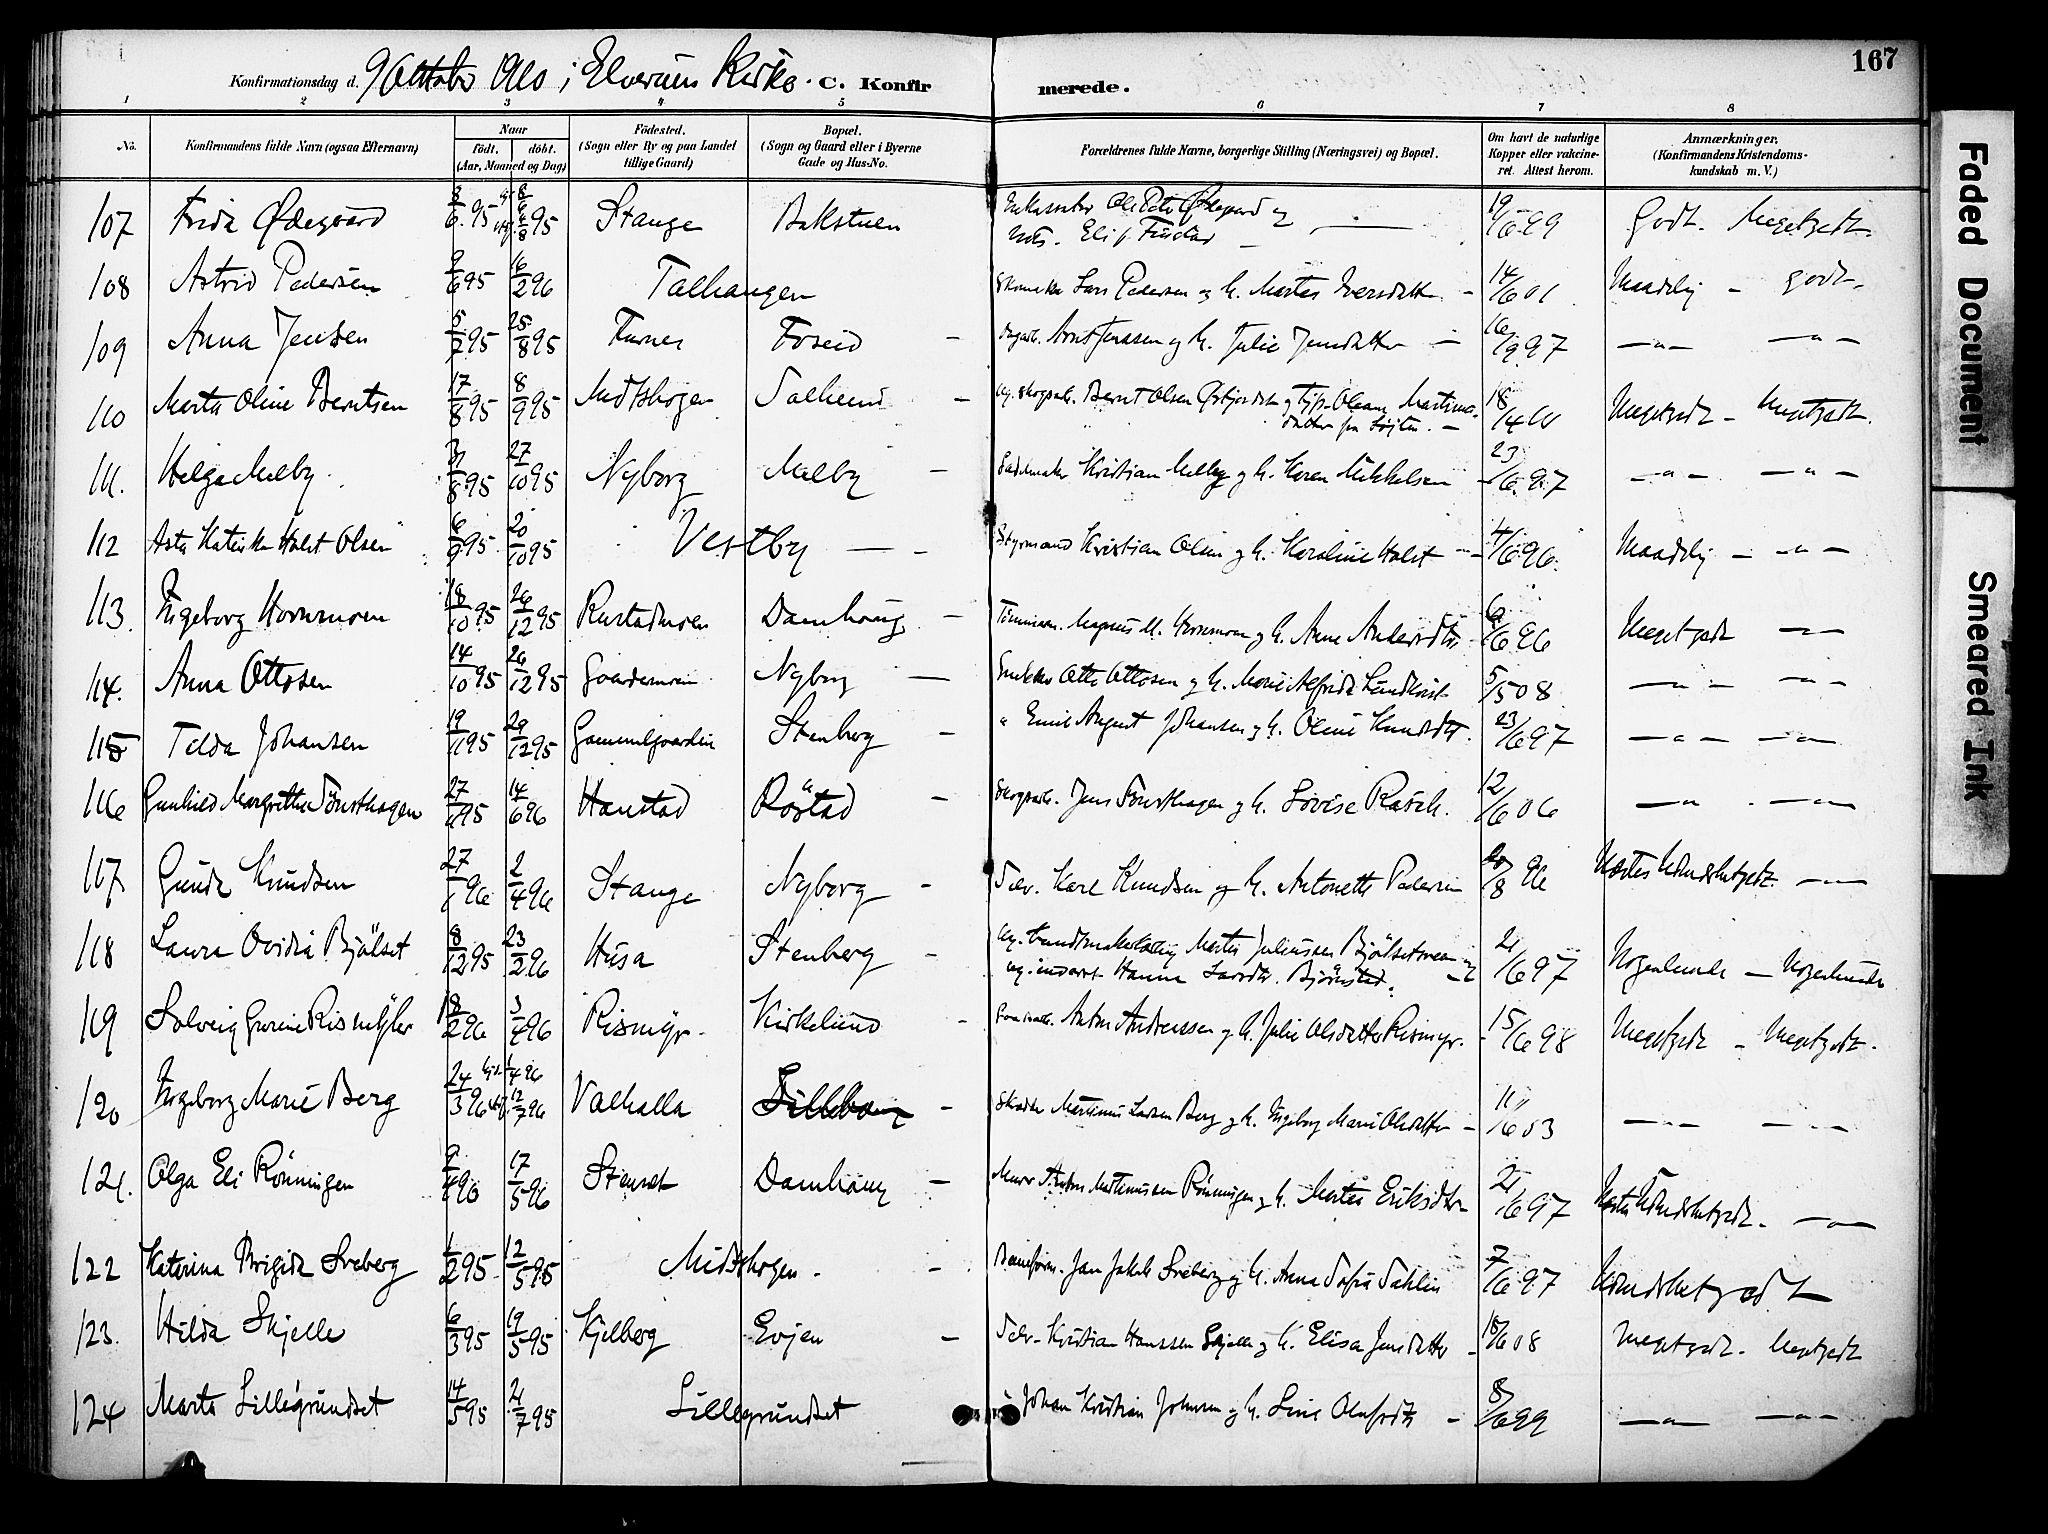 167
Konfirmationsdag d. 9 Oktober 1910 i Elverum Kirke. C. Konfirmerede.
1 2 3 4 5 6 7 8
No. Konfirmandens fulde Navn (ogsaa Efternavn) Naar født. døbt. (Aar, Maaned og Dag) Födested. (Sogn eller By og paa Landet tillige Gaard) Bopæl. (Sogn og Gaard eller i Byerne Gade og Hus-No. Forældrenes fulde Navne, borgerlige Stilling (Næringsvei) og Bopæl. Om havt de naturlige Kopper eller vakcineret. Attest herom. Anmærkninger, (Konfirmandens Kristendomskundskab m. V.)
107 Frida Ødegaard 3/6 95 Stange Bakstuen Ole Peter Ødegaard og 19/6 99 Godt. Megetgodt.
108 Astrid Pedersen 9/6 95 16/2 96 Talhaugen Lars Pedersen og h. Marte Iversdatter 14/6 01 Maadelig – godt.
109 Anna Jensen 5/7 95 25/8 95 Furnes Foseid – Arnt Jenssen og h. Julie Jensdatter – 16/9 97 – " – – " –
110 Marta Oline Berntsen 17/8 95 8/9 95 Midtskogen Solheim – Bernt Olsen og Martinusdatter 18/4 Megetgodt – Megetgodt.
111. Helga Melby 31/8 95 27/10 95 Nyborg Melby – Sadelmaker Kristian Melby og h. Karen Mikkelsen 23/6 97 – " – – " –
112 Asta Katinka Holst Olsen 6/9 95 20/10 95 Vestby – Styrmand Kristian Olsen og h. Karoline Holst 4/6 96. Maadelig – – " –
113. Ingeborg Hornmoen 18/10 95 26/12 95 Rustadmoen Damhaug – Tømmerm. Magnus M. Hornmoen og h. Anne Andersdtr 6/6 96 Megetgodt – " –
114. Anna Ottosen 14/10 95 26/12 95 Gaardermoen Nyborg – Otto Ottosen og h. Marie Alfrida Lundkvist 5/5 08 – " – – " –
115 Tilda Johansen 19/11 95 29/12 95 Gammelgaarden Stenberg – " Emil August Johansen og h. Oline Knudsdtr. 23/6 97 – " – – " –
116 Gunhild Margrethe Tønsthagen 27/ 95 14/6 96 Hanstad Røstad – Skogsarb. Jens Tønsthagen og h. Lovise Rasch. 12/6 06 – " – – " –
117 Gunda Knudsen 27/1 96 2/4 96 Stange Nyborg – Karl Knudsen og h. Antonette Pedersen 20/8 96 Næsten Udmerketgodt. – " –
118 Laura Ovidia Bjølset 8/12 95 23/2 96 Husa Stenberg – Martin Juliussen Bjølsetsveen og ug. inderst Hanna Larsdtr. Bjørnstad. 21/6 97 Nogenlunde – Nogenlunde
119 Solveig Rismyhr 18/2 96 3/4 96 Rismyr. Kirkelund – Anton Andreassen og h. Julie Olsdatter Rismyr. – 15/6 98 Megetgodt – Megetgodt.
120 Ingeborg Marie Berg 24/3 96 1/4 96 12/7 96 Valhalla – Skrædder Martinus Larsen Berg og h. Ingeborg Marie Olsdatter – 11/6 03 – " – – " –
121. Olga Eli Rønningen 9/4 96 17/5 96 Stenset Damhaug – Murer Anton Martinussen Rønningen og h. Marte Eriksdtr 21/6 97 Næsten Udmerketgodt. – " –
122 Katarina Brigida Sveberg 1/2 95 12/5 95 Midtskogen. – Baneform. Jan Jakob Sveberg og h. Anna Sofia Sahlin 7/6 97 Udmerketgodt
123. Hilda Skjelle 6/3 95 19/5 95 Kjelberg Evjen – Kristian Hanssen Skjelle og h. Elisa Jensdatter – 18/6 08 Megetgodt. Megetgodt
124 Marta Lillegrundset 14/5 95 21/7 95 Lillegrundset Johan Kristian Johnsen og h. Line Olafsdtr – 8/6 99 – " – – " –
Faded Document
Smeared Ink